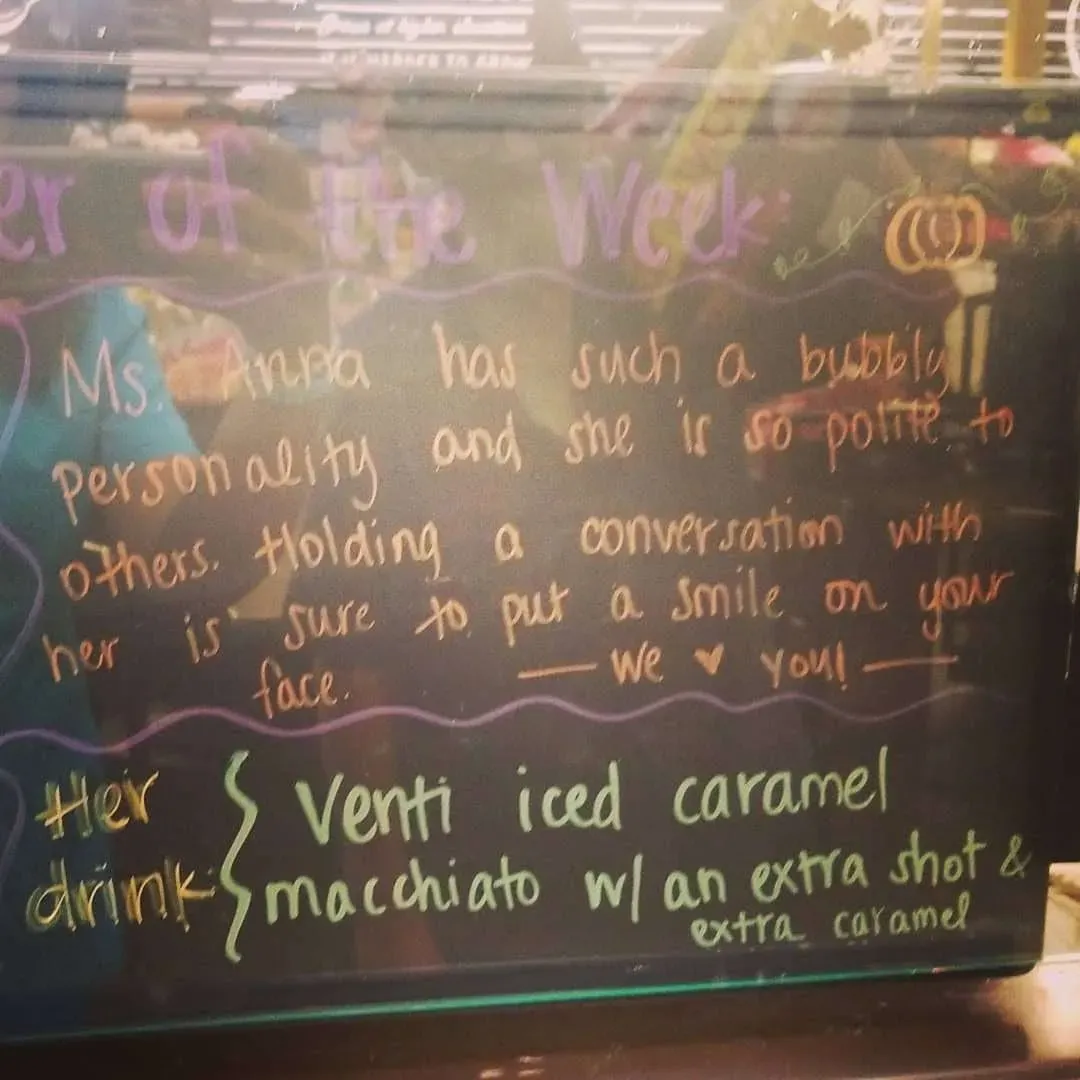 er of the Week:
Ms. Anna has such a bubbly
personality and she is so polite to
others. Holding a conversation with
her is sure to put a smile on your
face. — We ♥ you! —
Her drink:
Venti iced caramel
macchiato w/ an extra shot &
extra caramel